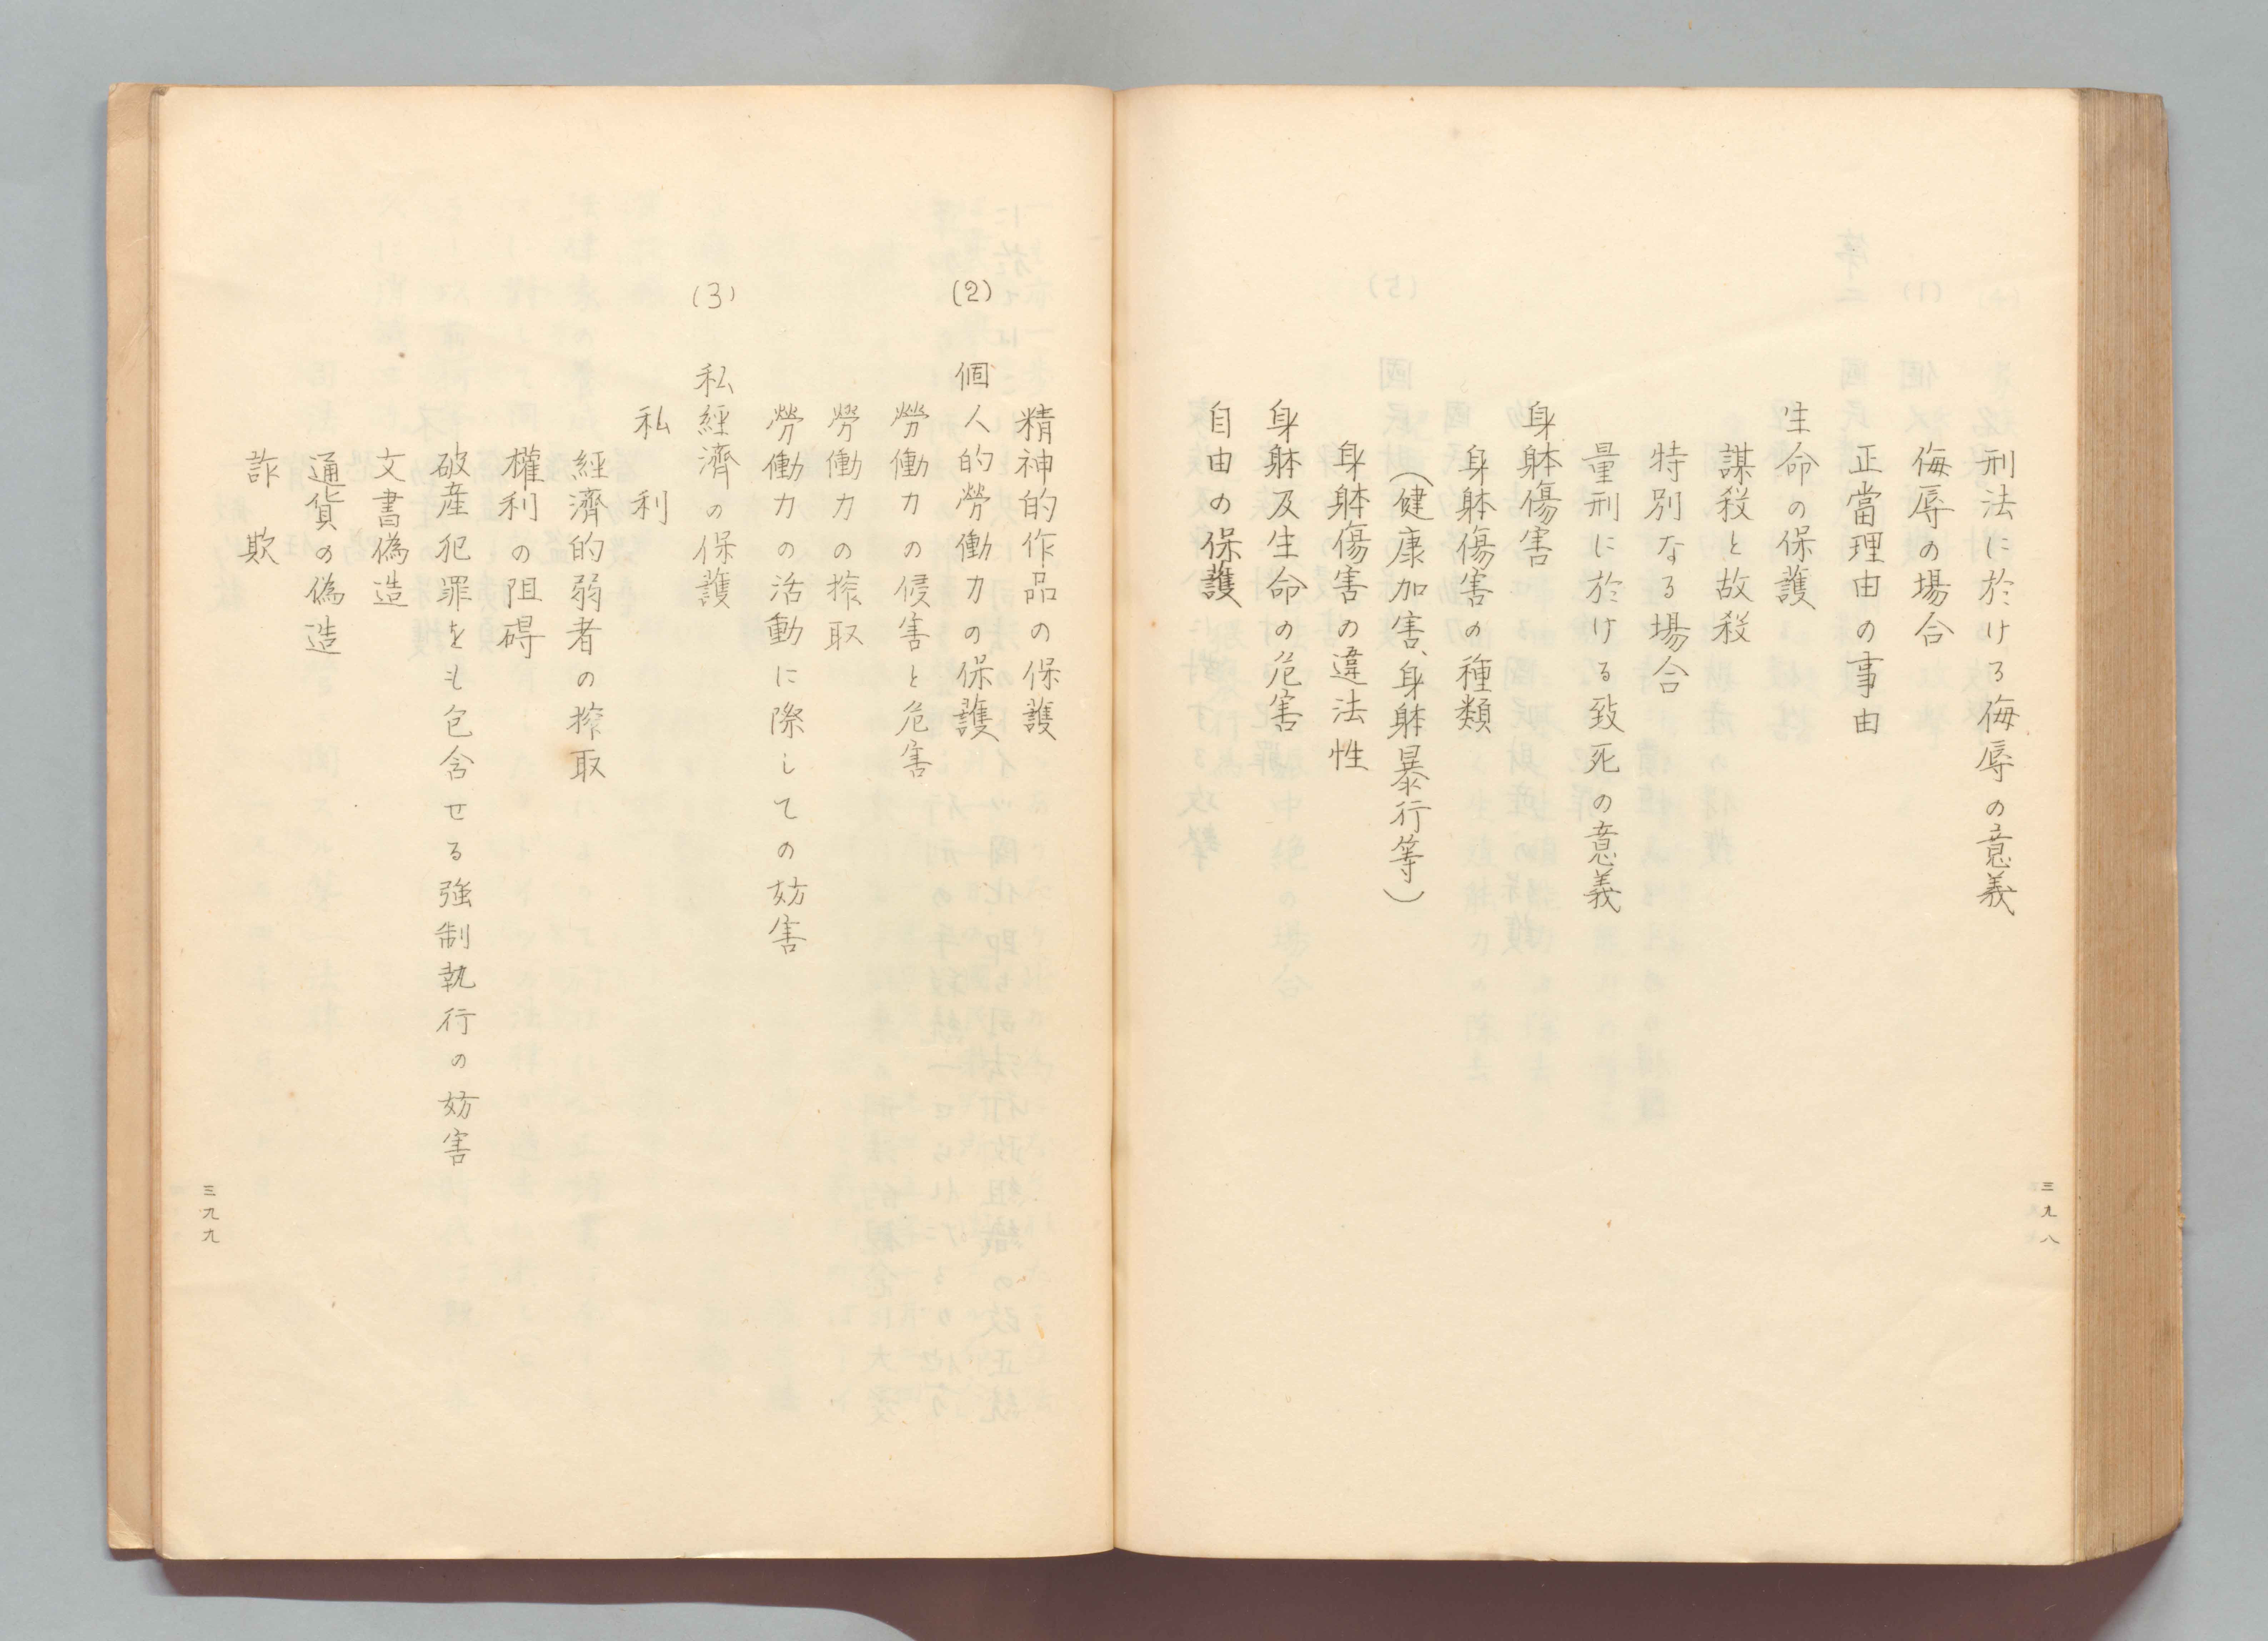 刑法に於ける侮辱の意義
侮辱の場合
正當理由の事由
生命の保護
謀殺と故殺
特別なる場合
量刑に於ける致死の意義
身躰傷害
身躰傷害の種類
(健康加害、身躰暴行等)
身躰傷害の違法性
身躰及生命の危害
自由の保護
三九八
精神的作品の保護
(2) 個人的勞働力の保護
勞働力の侵害と危害
勞働力の搾取
勞働力の活動に際しての妨害
(3) 私經濟の保護
私利
經濟的弱者の搾取
權利の阻碍
破産犯罪をも包含せる強制執行の妨害
文書偽造
通貨の偽造
詐欺
三九九